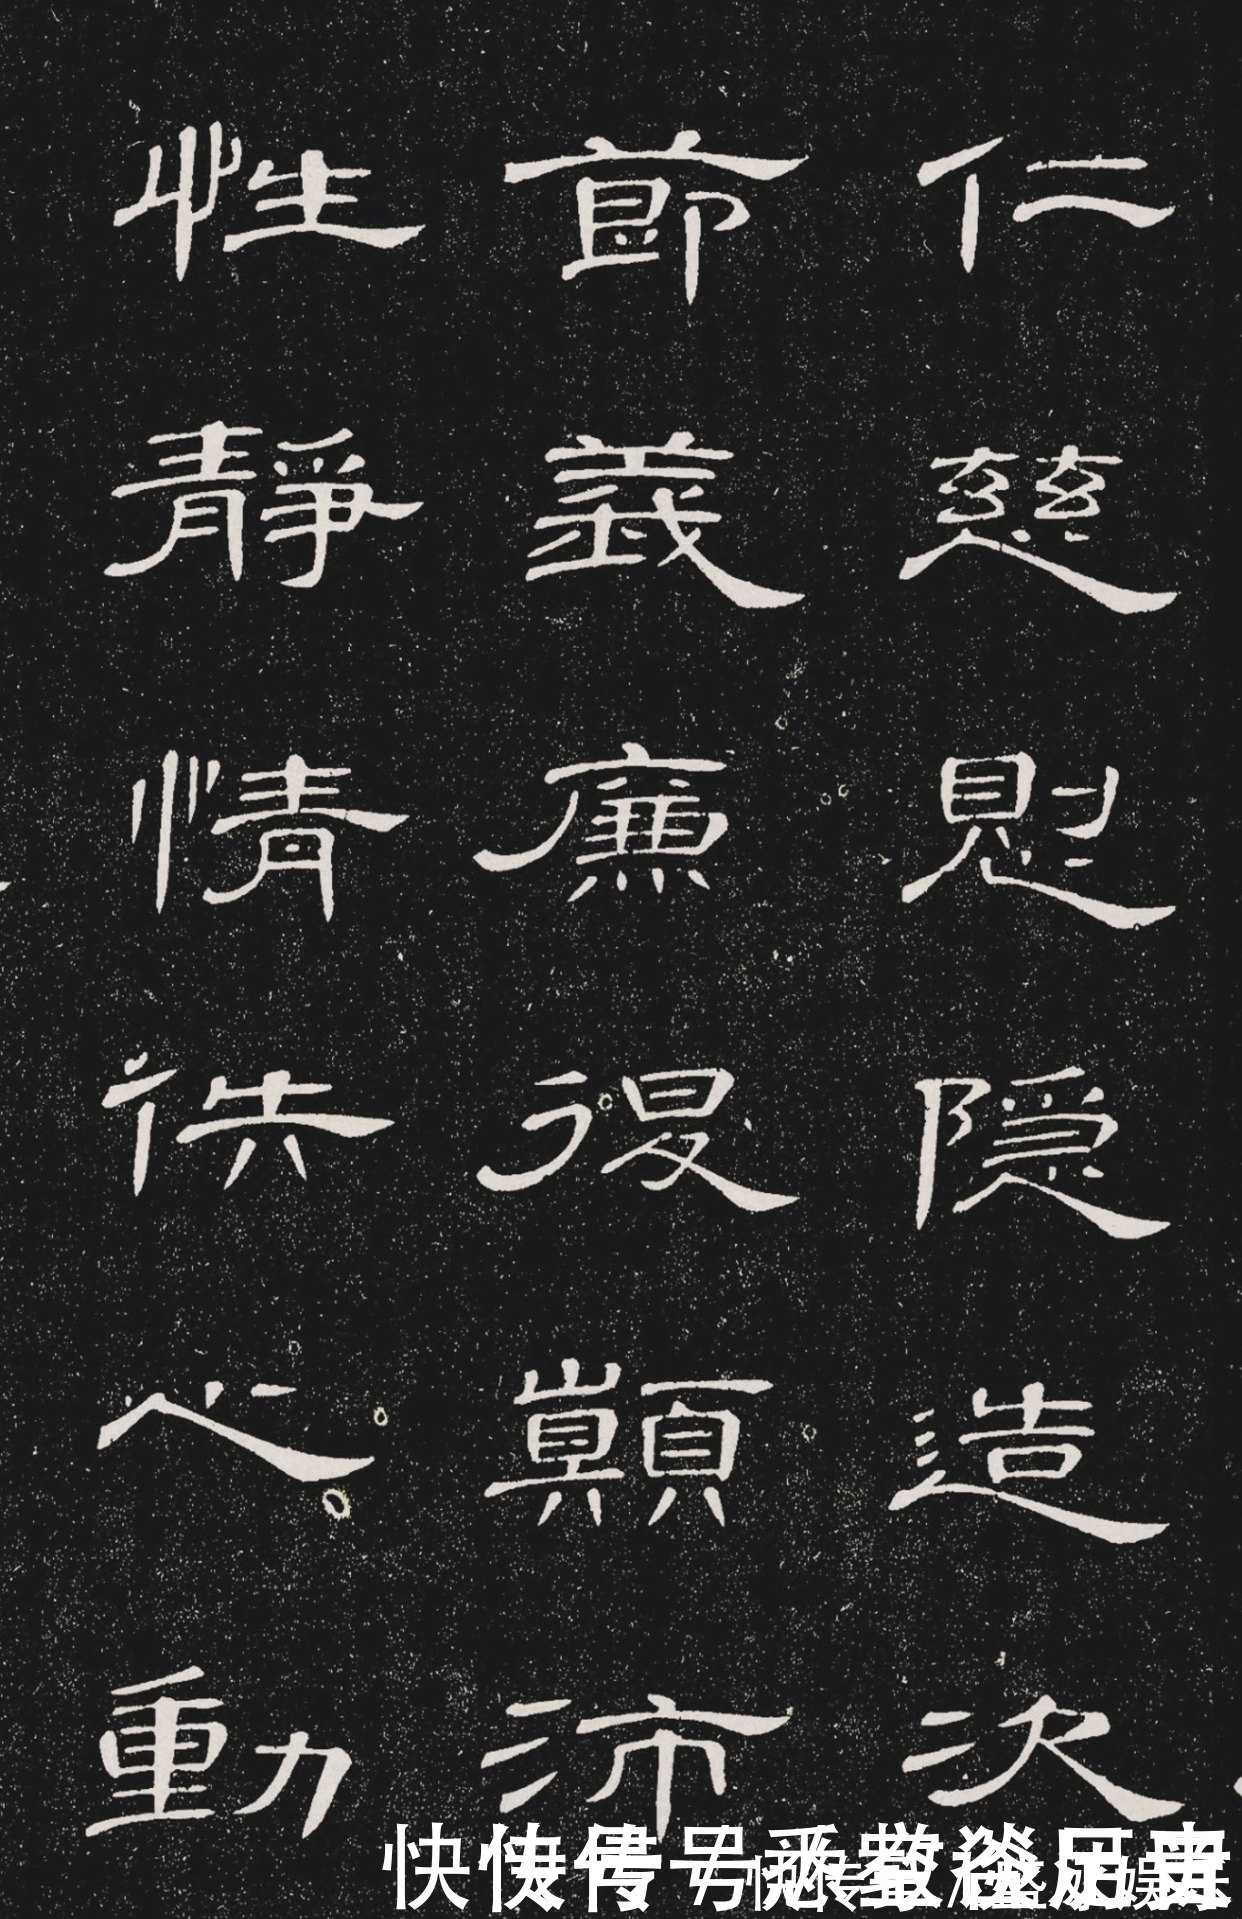 仁慈惻隱造次
節義廉退顛沛
性靜情佚心動
快传号 /